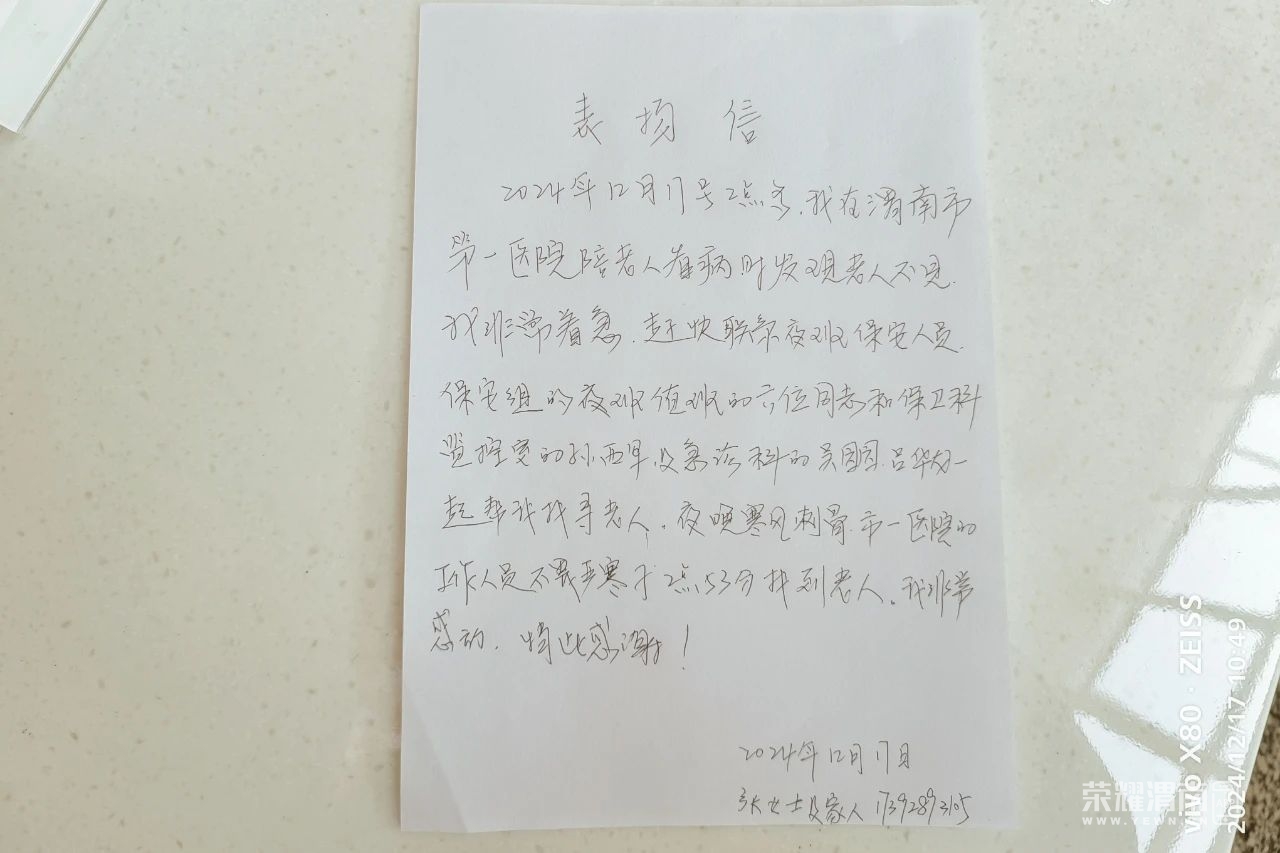 表扬信
2024年12月17号2点多,我在渭南市
第一医院陪老人看病时发现老人不见.
我非常着急.赶快联系夜班保安人员.
保安组的夜班值班的六位同志和保卫科
监控室的孙西早及急诊科的吴团团.吕华龙一
起帮我找寻老人,夜晚寒风刺骨.市一医院的
工作人员不畏严寒于2点53分找到老人.我非常
感动.特此感谢!
2024年12月17日
张女士及家人 17392893105
vivo X80 · ZEISS
2024/12/17 10:49
荣耀渭南